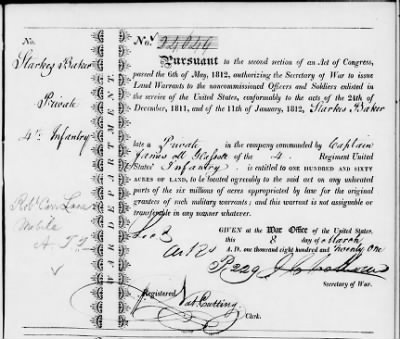 No.
Starkes Baker
Private
4th Infantry
Mobile
WAR DEPARTMENT.
No. 24649
Pursuant to the second section of an Act of Congress,
passed the 6th of May, 1812, authorizing the Secretary of War to issue
Land Warrants to the noncommissioned Officers and Soldiers enlisted in
the service of the United States, conformably to the acts of the 24th of
December, 1811, and of the 11th of January, 1812, Starkes Baker
late a Private in the company commanded by Captain
James M of the 4 Regiment United
States' Infantry is entitled to ONE HUNDRED AND SIXTY
ACRES OF LAND, to be located agreeably to the said act on any unlocated
parts of the six millions of acres appropriated by law for the original
grantees of such military warrants; and this warrant is not assignable or
transferable in any manner whatever.
GIVEN at the War Office of the United States,
this 8 day of March
A. D. one thousand eight hundred and twenty One
Secretary of War.
Registered
Nat Cutting
Clerk.